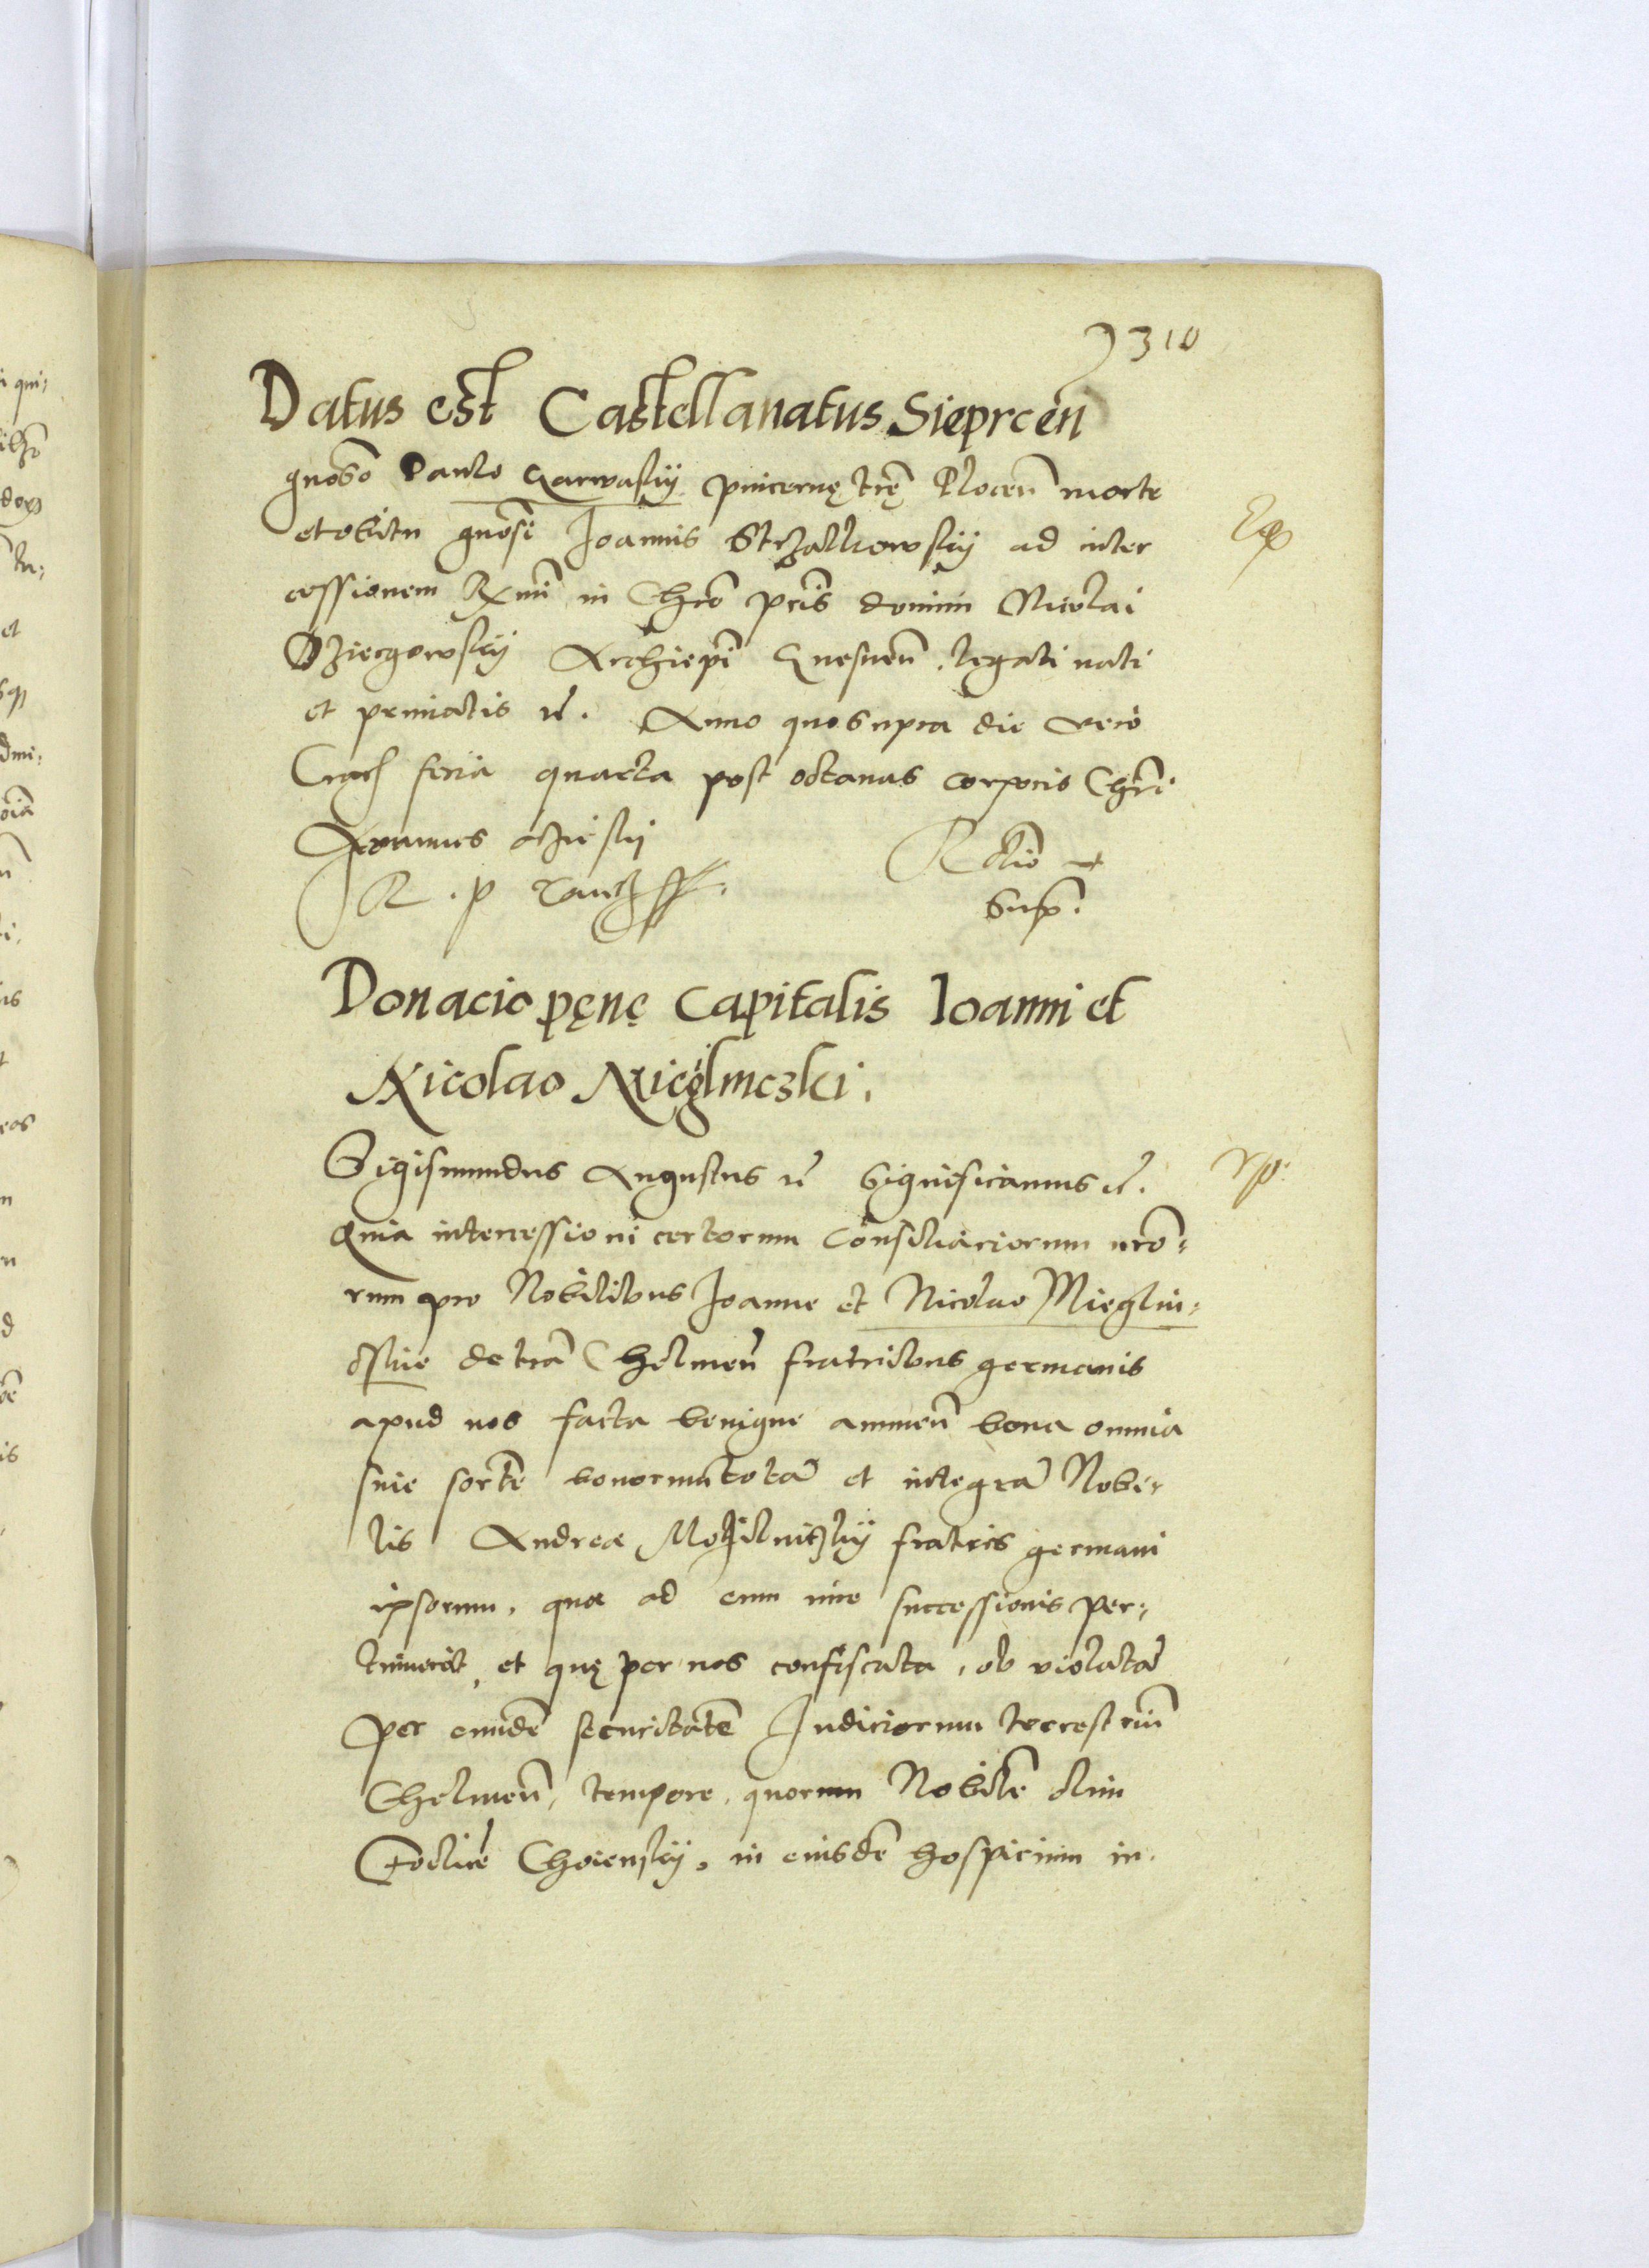 310
Datus est Castellanatus Sieprcen̄
gnoso Paulo Garwaskij pincernę trę Plocen̄ morte
et obitu gnosi Joannis Strzalkowskij ad inter
cessionem Rmi in Chro pris domini Nicolai
Dziergowskij Archiepi Gnesnen̄, legati nati
et primatis etc. Anno quo supra die vero
Crac feria quarta post octauas corporis Chri.
Joannes oczieskij
R. p Canc
Relatio ut
sup.
Donacio pęnę Capitalis Joanni et
Nicolao Mieglinczki.
Sigismundus Augustus etc Significamus etc.
Quia intercessioni certorum Consiliariorum nro-
rum pro Nobilibus Joanne et Nicolao Mieglin-
skie de tra Chelmen̄ fratribus germanis
apud nos facta benigne annuen̄ bona omnia
siue sorte bonorum tota et integra Nobi-
lis Andreæ Mozilniczkij fratris germani
ipsorum, quæ ad eum iure successionis per-
tinuerit, et quę per nos confiscata, ob violata
per eunde securitate Judiciorum terrestrium
Chelmen̄, tempore, quorum Nobile olim
Choienskij, in eiusde hospicium in-